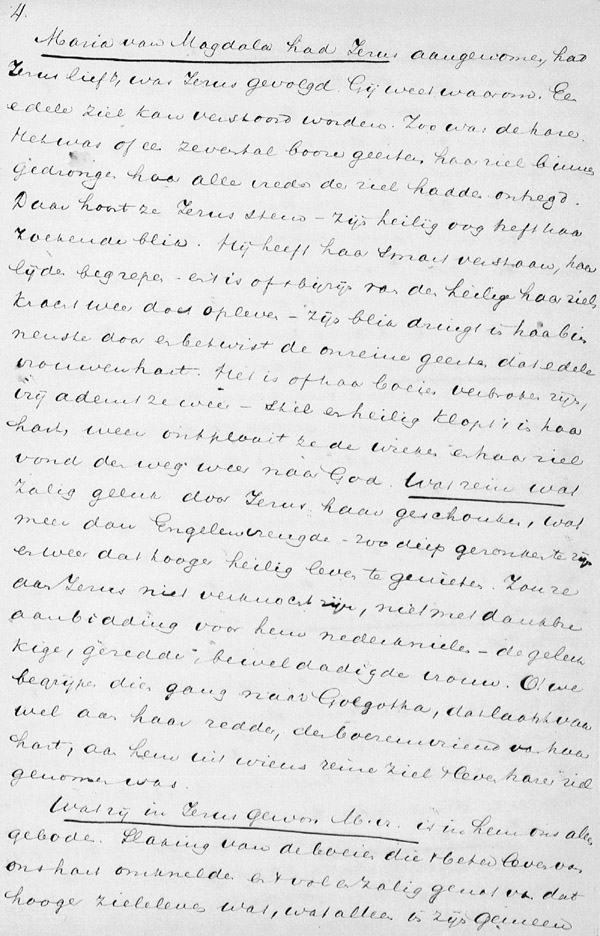 4.
Maria van Magdala had Jezus aangenomen, had
Jezus lief, was Jezus gevolgd. Gij weet waarom. Een
edele ziel kan verstoord worden. Zoo was de hare.
Het was of een zevental booze geesten haar ziel binnen
gedrongen haar alle vrede der ziel hadden ontzegd.
Daar hoort ze Jezus stem – zijn heilig oog treft haar
zoekende blik. Hij heeft haar smart verstaan, haar
lijden begrepen – en 't is of 't bijzijn van den heilige haar ziels
kracht weer doet opleven – zijn blik dringt in haar bin
nenste door en betwist de onreine geesten dat edele
vrouwenhart. Het is of haar boeien verbroken zijn,
vrij ademt ze weer – stil en heilig klopt 't in haar
hart, weer ontplooit ze de wieken en haar ziel
vond den weg weer naar God. Wat rein wat
zalig geluk door Jezus haar geschonken, wat
meer dan Engelenvreugde – zoo diep gezonken te zijn
en weer dat hooger heilig leven te genieten. Zou ze
aan Jezus niet verknocht zijn, niet met dankbre
aanbidding voor hem nederknielen – de geluk
kige, geredde, beweldadigde vrouw. O! we
begrijpen dien gang naar Golgotha, dat laatst vaar
wel aan haar redder, den boezemvriend van haar
hart, aan hem uit wiens reine ziel 't leven harer ziel
genomen was.
Wat zij in Jezus gewon M. v. is in hem ons allen
geboden. Slaking van de boeien die 't beter leven van
ons hart omknelden en 't vol en zalig genot van dat
hooge zieleleven wat, wat alleen in zijn gemeen